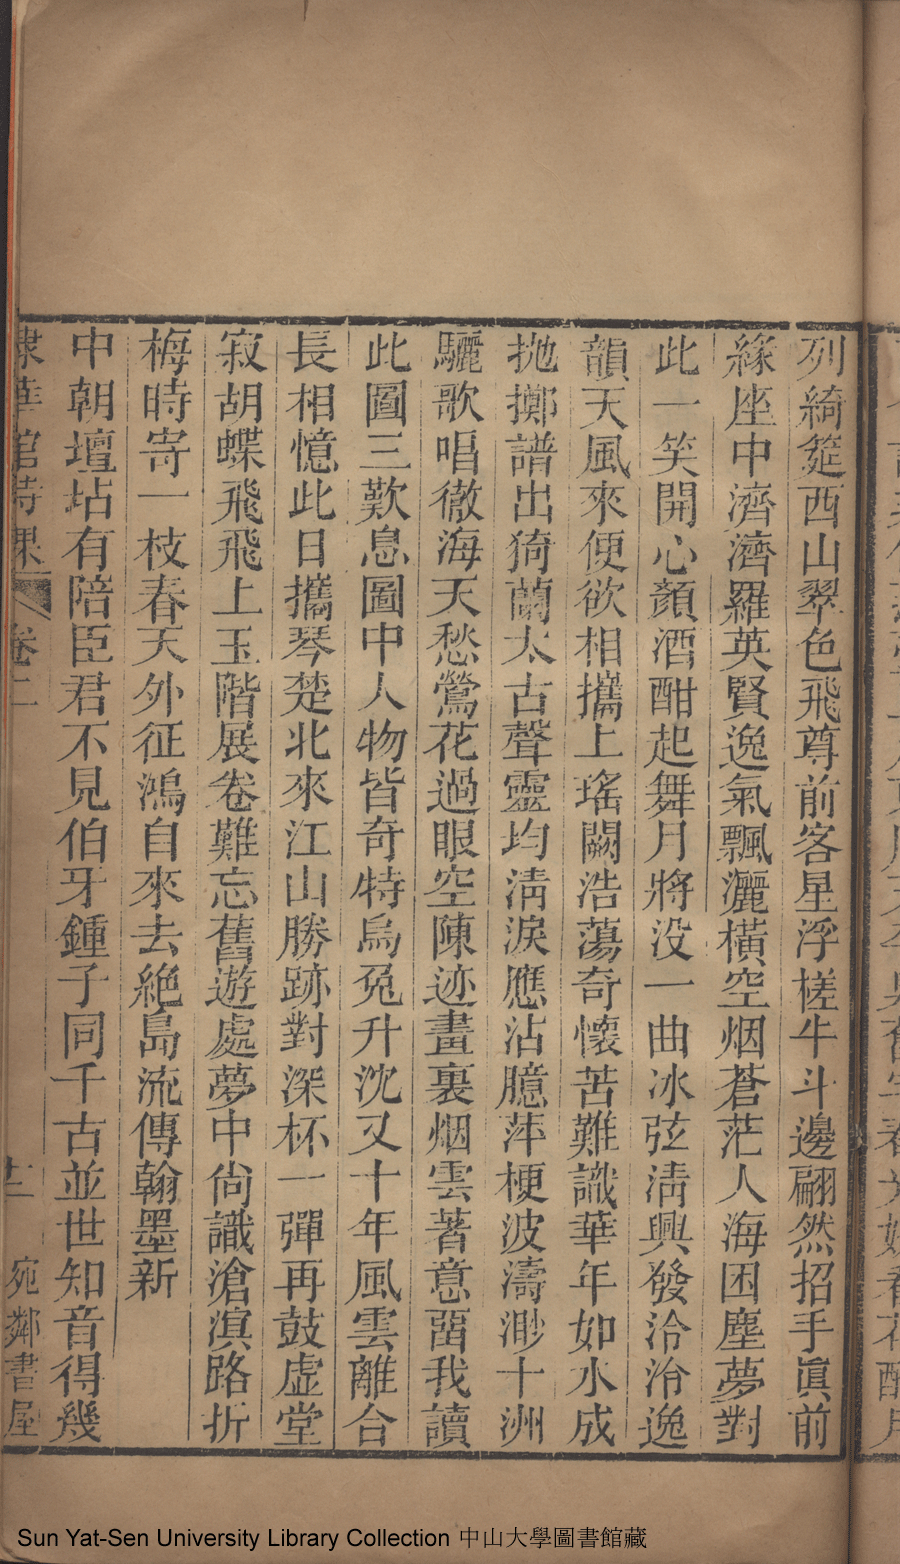 列綺筵西山翠色飛尊前客星浮槎牛斗邊翩然招手眞前
緣座中濟濟羅英賢逸氣飄灑橫空烟蒼茫人海困塵夢對
此一笑開心顏酒酣起舞月將没一曲冰弦淸興發泠泠逸
韻天風來便欲相攜上瑤闕浩蕩奇懷苦難識華年如水成
抛擲譜出猗蘭太古聲靈均淸淚應沾臆萍梗波濤渺十洲
驪歌唱徹海天愁鶯花過眼空陳迹畫裏烟雲著意畱我讀
此圖三歎息圖中人物皆奇特烏兔升沈又十年風雲離合
長相憶此日攜琴楚北來江山勝跡對深杯一彈再鼓虛堂
寂胡蝶飛飛上玉階展卷難忘舊遊處夢中尙識滄溟路折
梅時寄一枝春天外征鴻自來去絶島流傳翰墨新
中朝壇坫有陪臣君不見伯牙鍾子同千古並世知音得幾
棣華館詩課 卷二 十二 宛鄰書屋
Sun Yat-Sen University Library Collection 中山大學圖書館藏